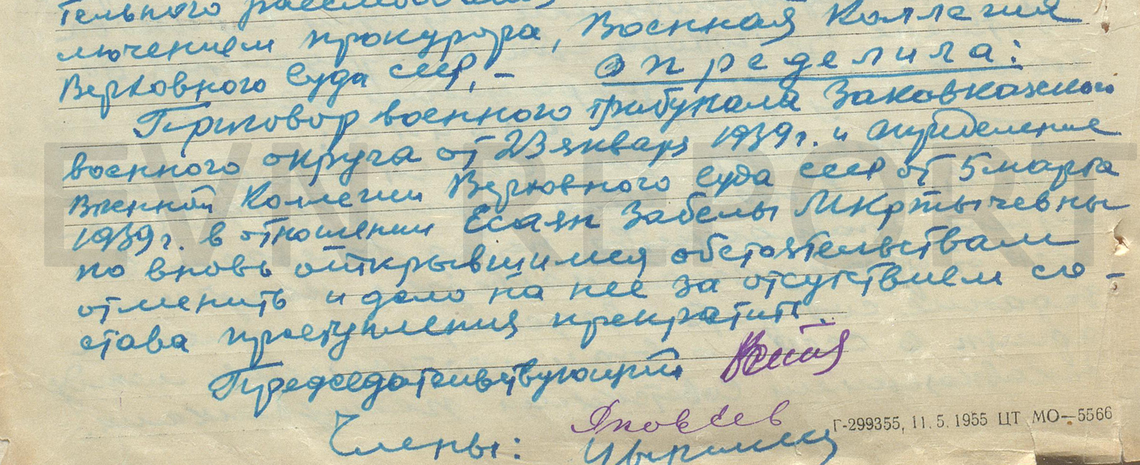 тельного
лючением прокурора, Военная Коллегия
Верховного Суда СССР, – определила:
Приговор военного трибунала Закавказского
военного округа от 23 января 1939г. и определение
Военной Коллегии Верховного Суда СССР от 5 марта
1939г. в отношении Есаян Забелы Мкртычевны
по вновь открывшимся обстоятельствам
отменить и дело на нее за отсутствием со-
става преступления прекратить.
Председательствующий
Яковлев
Члены:
Г-299355, 11.5.1955 ЦТ МО—5566
EVN REPORT